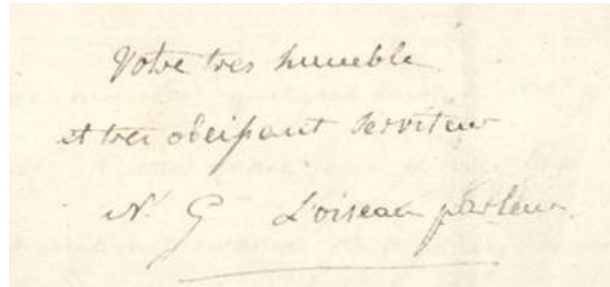 Votre tres humble
et tres obeissant serviteur
N. G L'oiseau parleur.